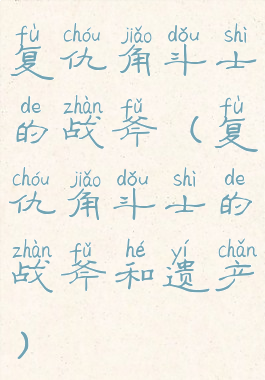 fù chóu jiǎo dǒu shì
复仇角斗士
de zhàn fǔ fù
的战斧（复
chóu jiǎo dǒu shì de
仇角斗士的
zhàn fǔ hé yí chǎn
战斧和遗产
）